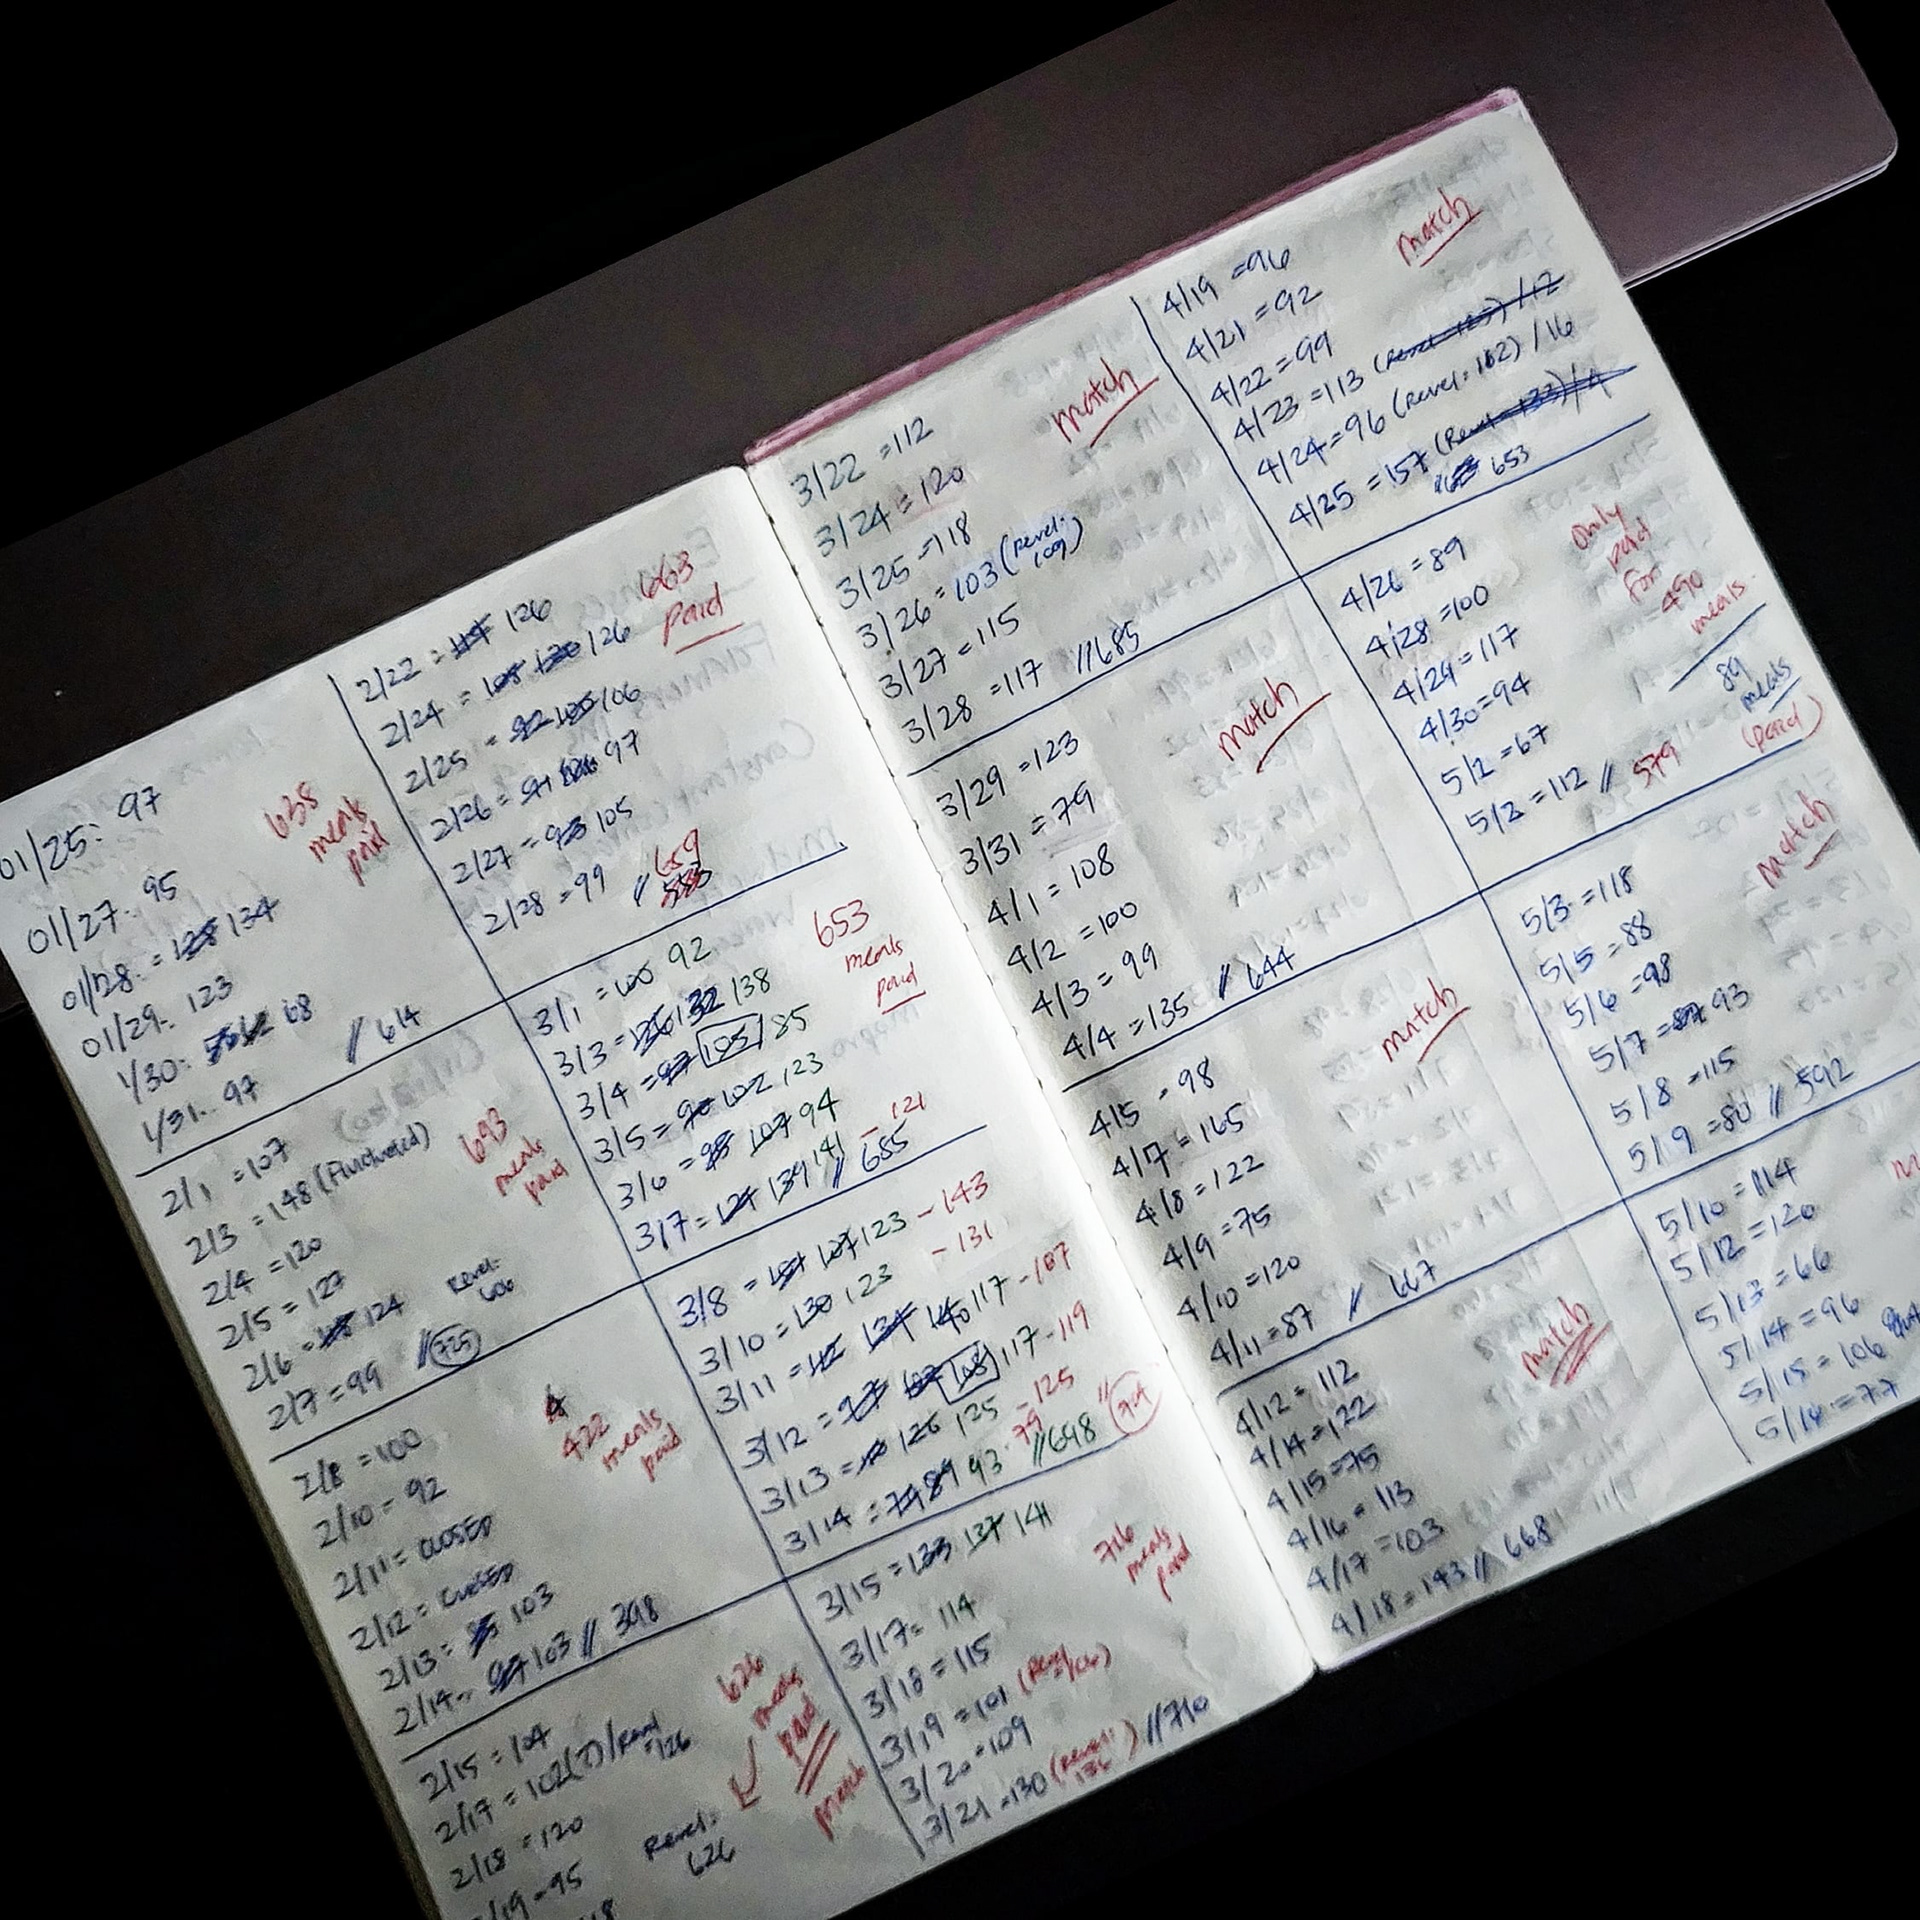 01/25: 97
01/27: 95
01/28: = 128 134
01/29: 123
1/30: 68
1/31: 97 // 614
638
meals
paid
2/1 = 107
2/3 = 148 (Fluctuated)
2/4 = 120
2/5 = 127
2/6 = 124
2/7 = 99 // 725
693
meals
paid
Revel:
606
2/8 = 100
2/10 = 92
2/11 = CLOSED
2/12 = CLOSED
2/13 = 103
2/14 = 97 103 // 398
422
meals
paid
2/15 = 104
2/17 = 102(?)/Revel
=126
2/18 = 120
2/19 = 95
626
meals
paid
match
Revel:
626
2/22 = 126
2/24 = 108 130 126
2/25 = 92 105 106
2/26 = 91 97
2/27 = 93 105
2/28 = 99 // 659
663
paid
3/1 = 100 92
3/3 = 126 132 138
3/4 = 97 105/85
3/5 = 90 102 123
3/6 = 95 107 94
3/7 = 127 139 141 // 685
653
meals
paid
-121
3/8 = 107 123 -143
3/10 = 130 123 -131
3/11 = 134 140 117 -107
3/12 = 108 117 -119
3/13 = 126 125 -125
3/14 = 79 89 93 -79 //698
3/15 = 133 137 141
3/17 = 114
3/18 = 115
3/19 = 101 (Revel
3/20 = 109
3/21 = 130 (Revel: 136) //710
716
meals
paid
3/22 = 112
3/24 = 120
3/25 = 118
3/26 = 103 (Revel:
109)
3/27 = 115
3/28 = 117 //685
match
3/29 = 123
3/31 = 79
4/1 = 108
4/2 = 100
4/3 = 99
4/4 = 135 // 644
match
4/5 = 98
4/7 = 165
4/8 = 122
4/9 = 75
4/10 = 120
4/11 = 87 // 667
match
4/12 = 112
4/14 = 122
4/15 = 75
4/16 = 113
4/17 = 103
4/18 = 143 // 668
match
4/19 = 96
4/21 = 92
4/22 = 99
4/23 = 113 (Revel = 125) /12
4/24 = 96 (Revel: 112) /16
4/25 = 157 (Revel = 133) /
653
match
4/26 = 89
4/28 = 100
4/29 = 117
4/30 = 94
5/1 = 67
5/2 = 112 // 579
Only
paid
for
490
meals.
89
meals
(paid)
5/3 = 118
5/5 = 88
5/6 = 98
5/7 = 87 93
5/8 = 115
5/9 = 80 // 592
match
5/10 = 114
5/12 = 120
5/13 = 66
5/14 = 96
5/15 = 106
5/16 = 77